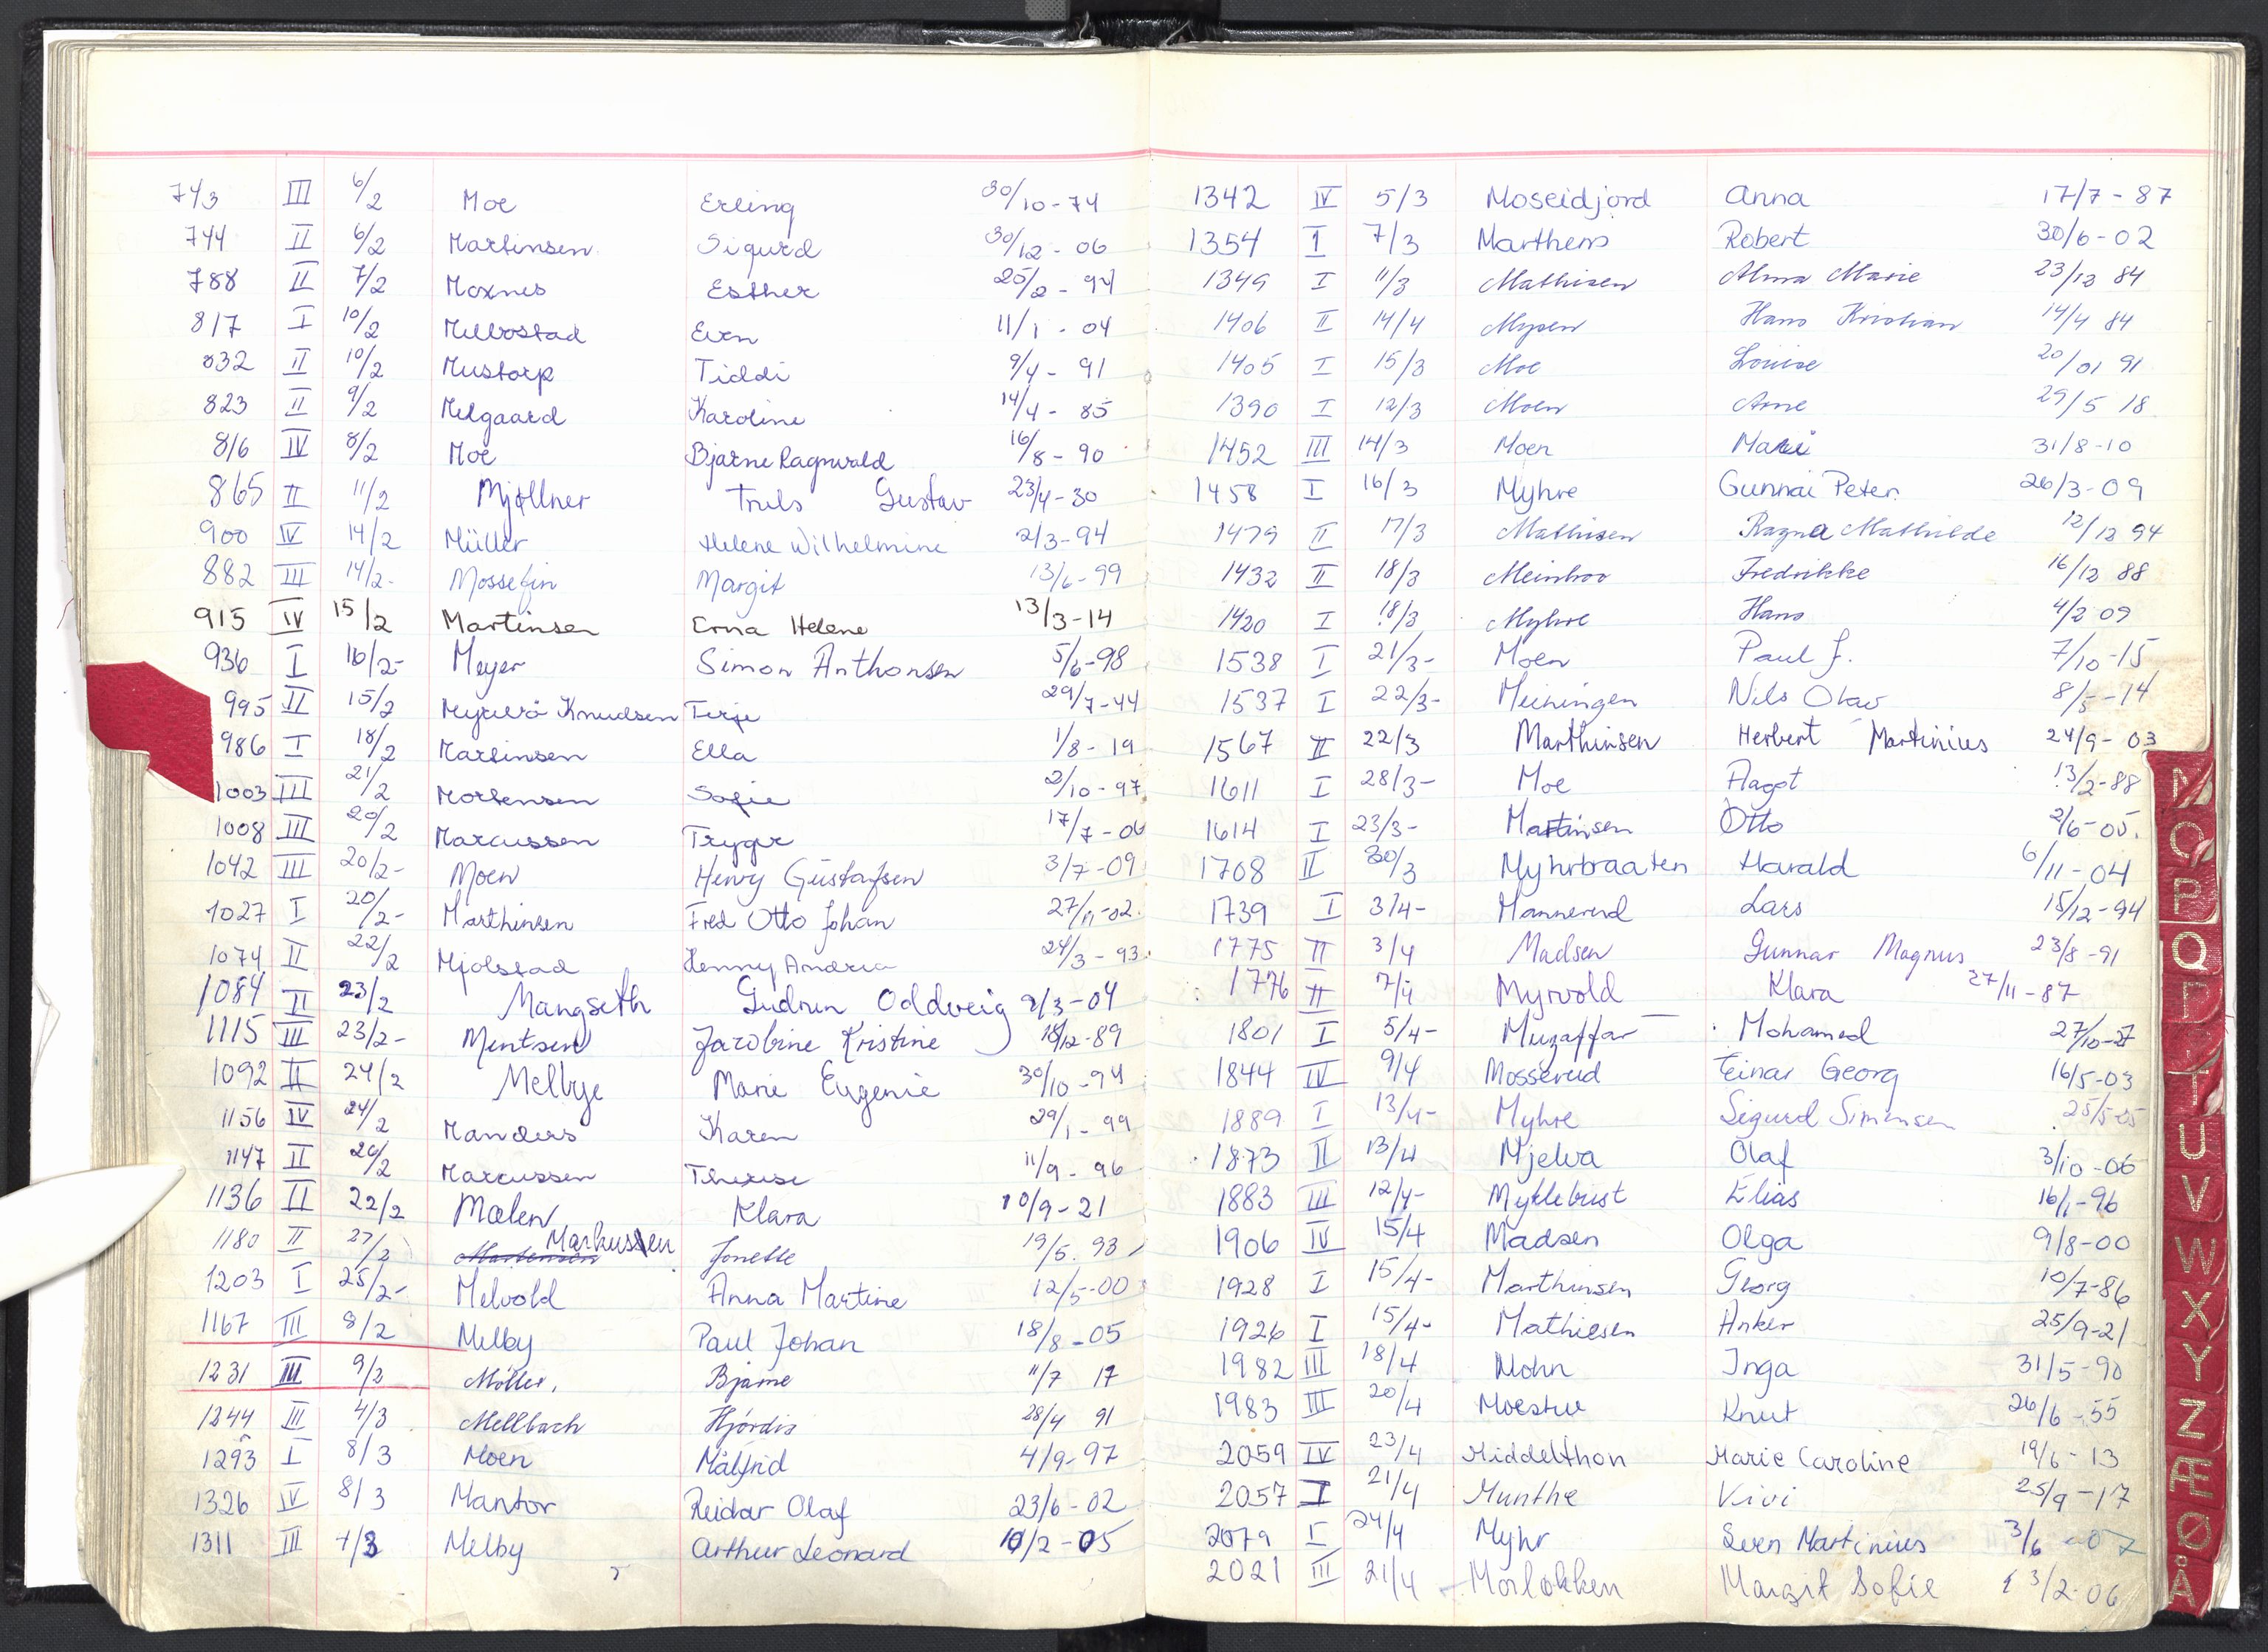 743 III 6/2 Moe Erling 30/10-74
744 II 6/2 Martinsen Sigurd 30/12-06
788 II 7/2 Moxnes Esther 25/2-94
817 I 10/2 Melbostad Even 11/1-04
832 II 10/2 Mustorp Tiddi 9/4-91
823 II 9/2 Melgaard Karoline 14/4-85
816 IV 8/2 Moe Bjarne Ragnvald 16/8-90
865 II 11/2 Mjøllner Truls Gustav 23/4-30
900 IV 14/2 Müller Helene Wilhelmine 2/3-94
882 III 14/2- Mossefin Margit 13/6-99
915 IV 15/2 Martinsen Erna Helene 13/3-14
936 I 16/2- Meyer Simon Anthonsen 5/6-98
995 II 15/2 Knudsen Terje 29/7-44
986 I 18/2 Martinsen Ella 1/8-19
1003 III 21/2 Mortensen Sofie 2/10-97
1008 III 20/2 Marcussen Trygve 17/7-06
1042 III 20/2- Moen Henry Gustafsen 3/7-09
1027 I 20/2- Marthinsen Fred Otto Johan 27/11-02
1074 II 22/2 Mjølstad Henny Andrea 24/3-93
1084 II 23/2 Mangseth Gudrun Oddveig 9/3-04
1115 III 23/2- Mentsen Jacobine Kristine 18/12-89
1092 II 24/2 Melbye Marie Eugenie 30/10-94
1156 IV 24/2 Manders Karen 29/1-99
1147 II 26/2 Marcussen Therese 11/9-96
1136 II 22/2 Mælen Klara 10/9-21
1180 II 27/2 Martensen Markussen Jonette 19/5. 93
1203 I 25/2- Melvold Anna Martine 12/5-00
1167 III 8/2 Melby Paul Johan 18/8-05
1231 III 9/2 Møller, Bjarne 11/7 17
1244 III 4/3 Mellbach Hjørdis 28/4 91
1293 I 8/3 Moen Målfrid 4/9-97
1326 IV 8/3 Mantor Reidar Olaf 23/6-02
1311 III 7/3 Melby Arthur Leonard 10/2-05
1342 IV 5/3 Moseidjord Anna 17/7-87
1354 I 7/3 Marthens Robert 30/6-02
1349 I 11/3 Mathisen Alma Marie 23/12 84
1406 II 14/4 Mysen Hans Kristian 14/4 84
1405 I 15/3 Moe Louise 20/01 91
1390 I 12/3 Moen Arne 29/5 18
1452 III 14/3 Moen Mari 31/8-10
1458 I 16/3 Myhre Gunnar Peter 26/3-09
1479 II 17/3 Mathisen Ragna Mathilde 12/12 94
1432 II 18/3 Fredrikke 16/12 88
1420 I 18/3 Myhre Hans 4/2 09
1538 I 21/3- Moen Paul J. 7/10-15
1537 I 22/3- Meiningen Nils Olav 8/5-14
1567 II 22/3 Marthinsen Herbert Martinius 24/9-03
1611 I 28/3- Moe Aagot 13/2-88
1614 I 23/3- Martinsen Otto 2/6-05.
1708 II 30/3 Myhrbraaten Harald 6/11-04
1739 I 3/4- Mannerud Lars 15/12-94
1775 II 3/4 Madsen Gunnar Magnus 23/8-91
1776 II 7/4 Myrvold Klara 27/11-87
1801 I 5/4- Muzaffar Mohamed 27/10-27
1844 IV 9/4 Mosserud Einar Georg 16/5-03
1889 I 13/4- Myhre Sigurd Simensen 25/5-05
1873 II 13/4 Mjelva Olaf 3/10-06
1883 III 12/4- Myklebust Elias 16/1-96
1906 IV 15/4 Madsen Olga 9/8-00
1928 I 15/4- Marthinsen Georg 10/7-86
1926 I 15/4- Mathiesen Anker 25/9-21
1982 III 18/4 Mohn Inga 31/5-90
1983 III 20/4 Moestue Knut 26/6-55
2059 IV 23/4 Middelthon Marie Caroline 19/6-13
2057 I 21/4 Munthe Vivi 25/9-17
2079 I 24/4 Myhr Sven Martinius 3/6-07
2021 III 21/4 Morløkken Margit Sofie 13/2-06
N
O
P
Q
R
T
U
V
W
X
Y
Z
Æ
Ø
Å